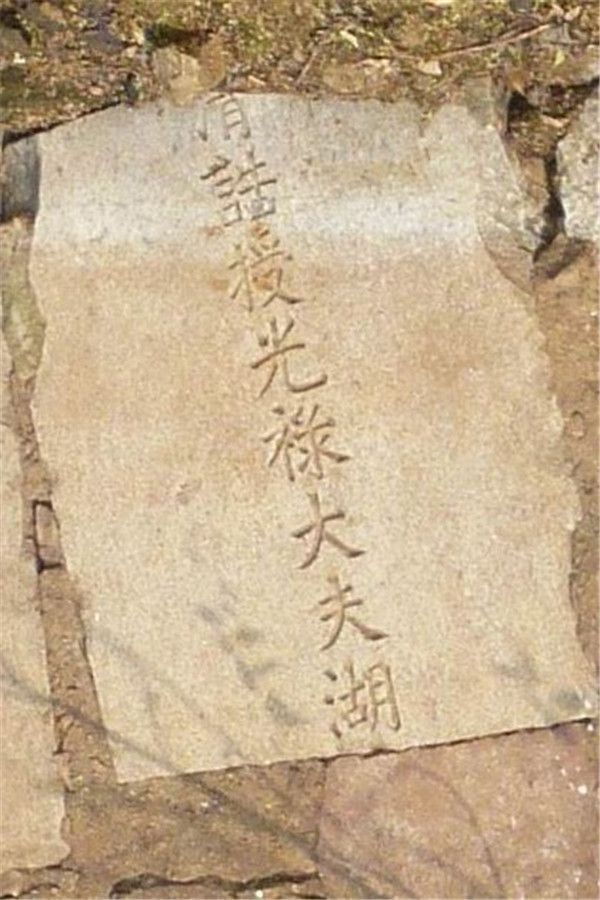 清誥授光祿大夫湖